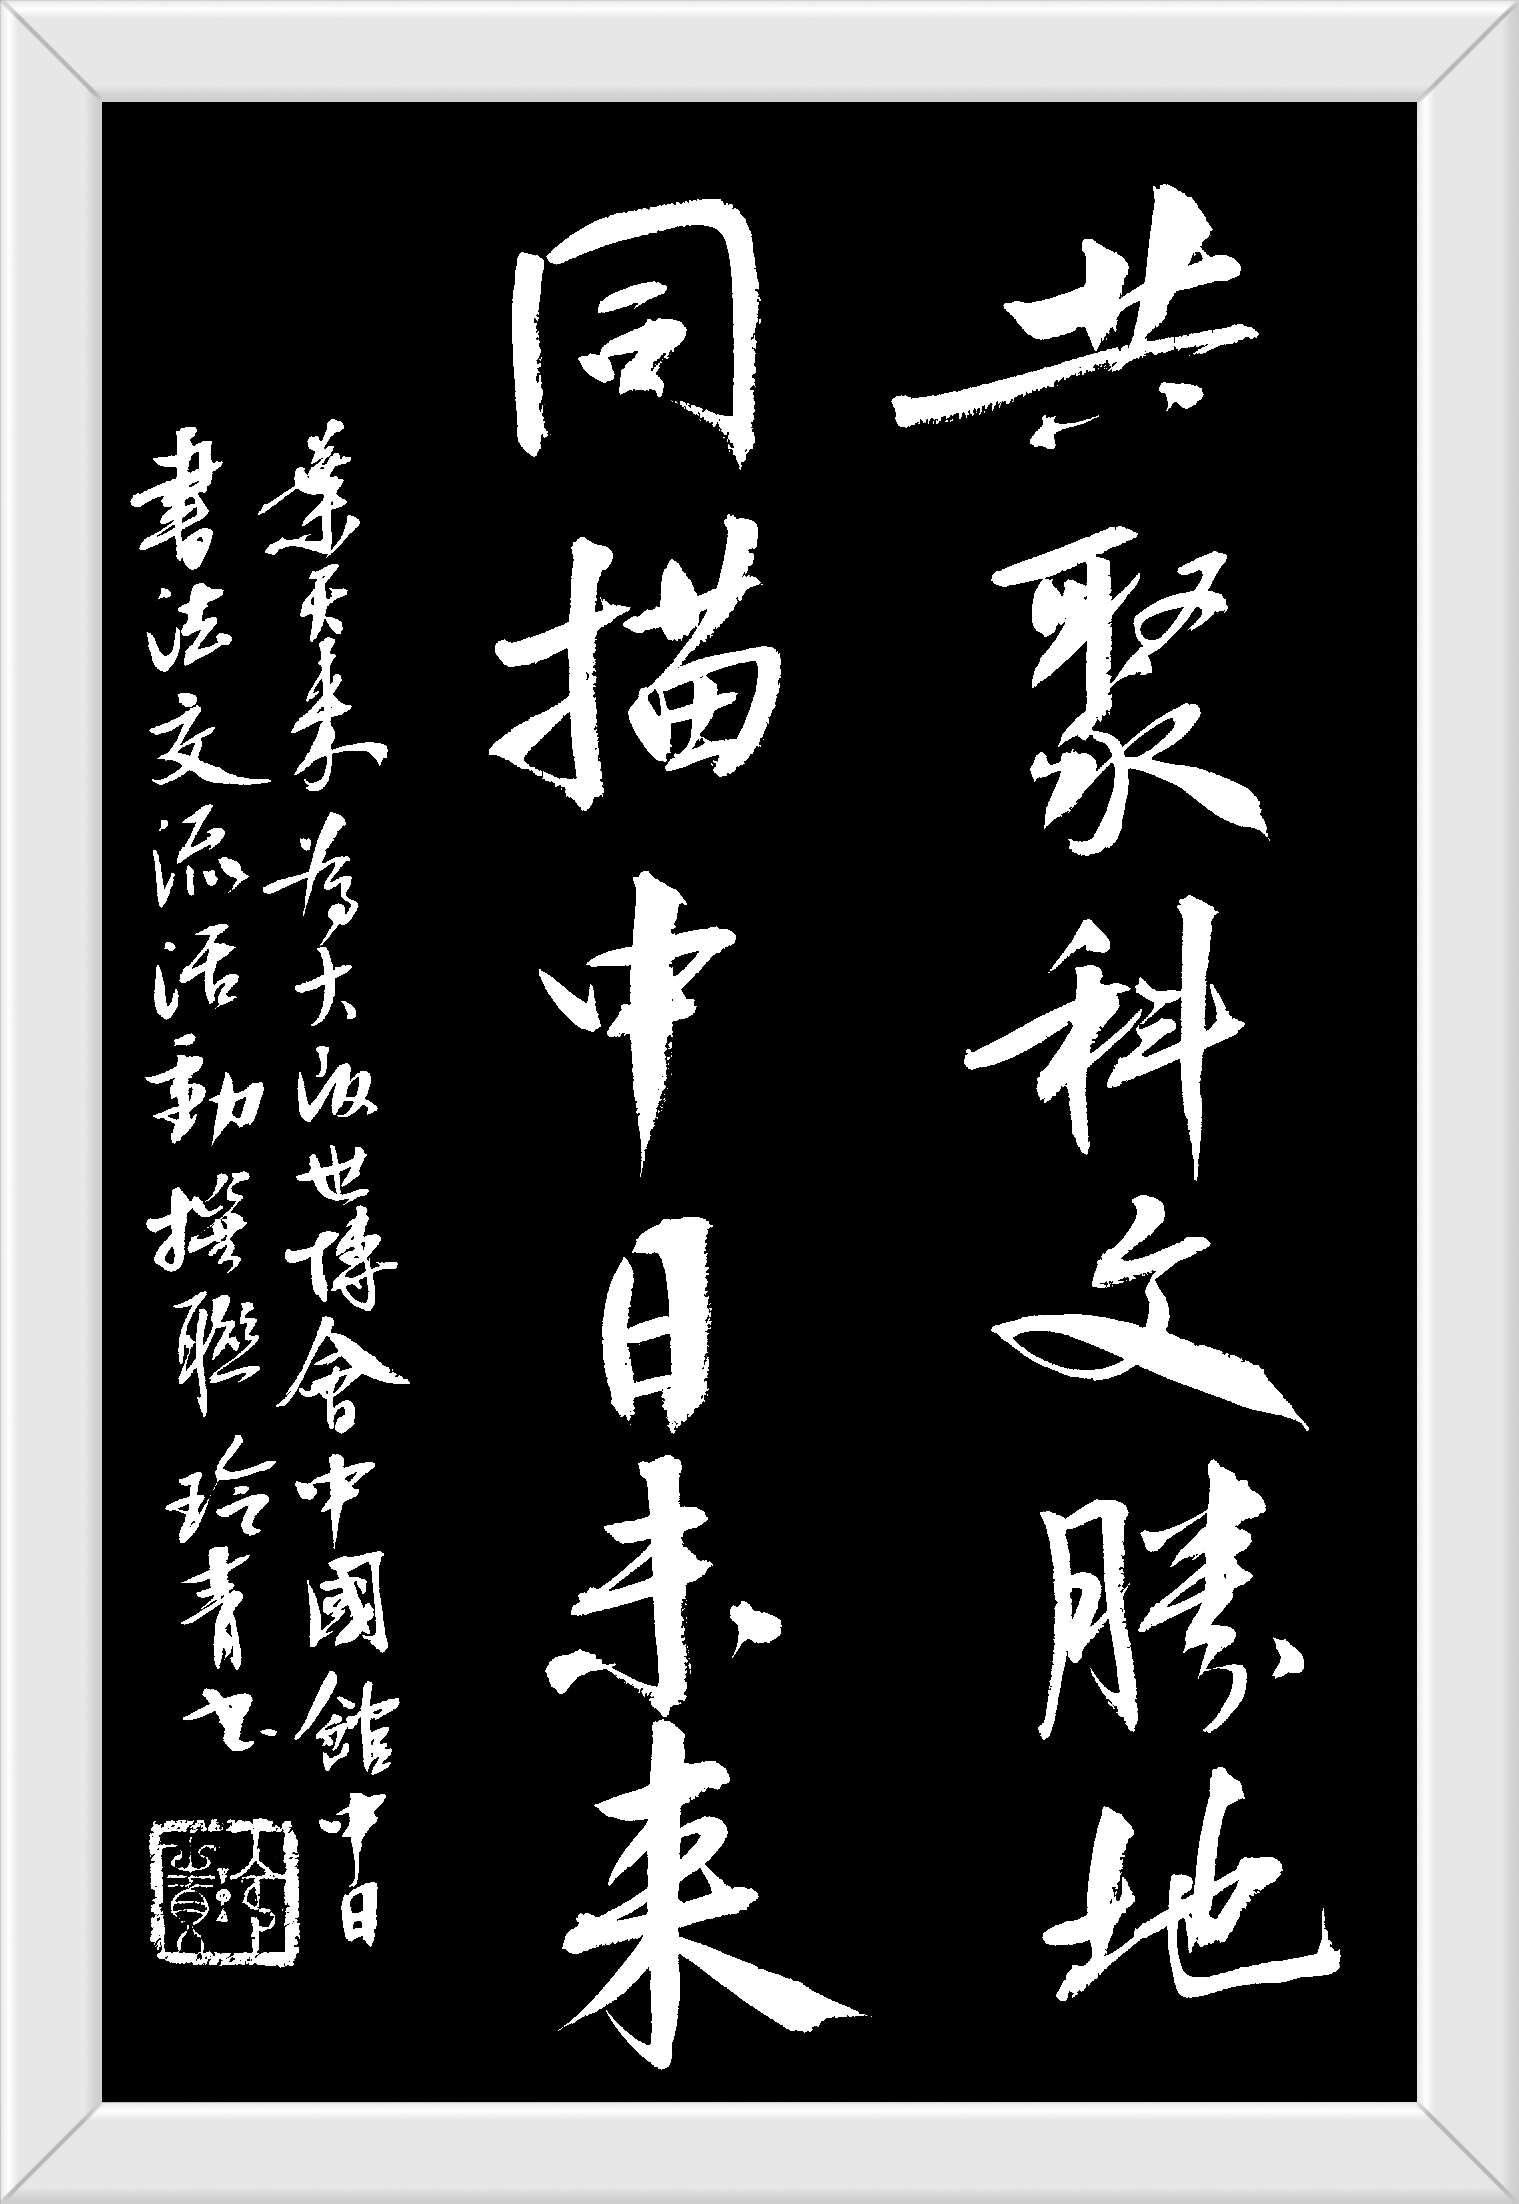 共聚科文勝地
同描中日未来
葉天来為大阪世博會中國館中日
書法交流活動撰聯 玲青书